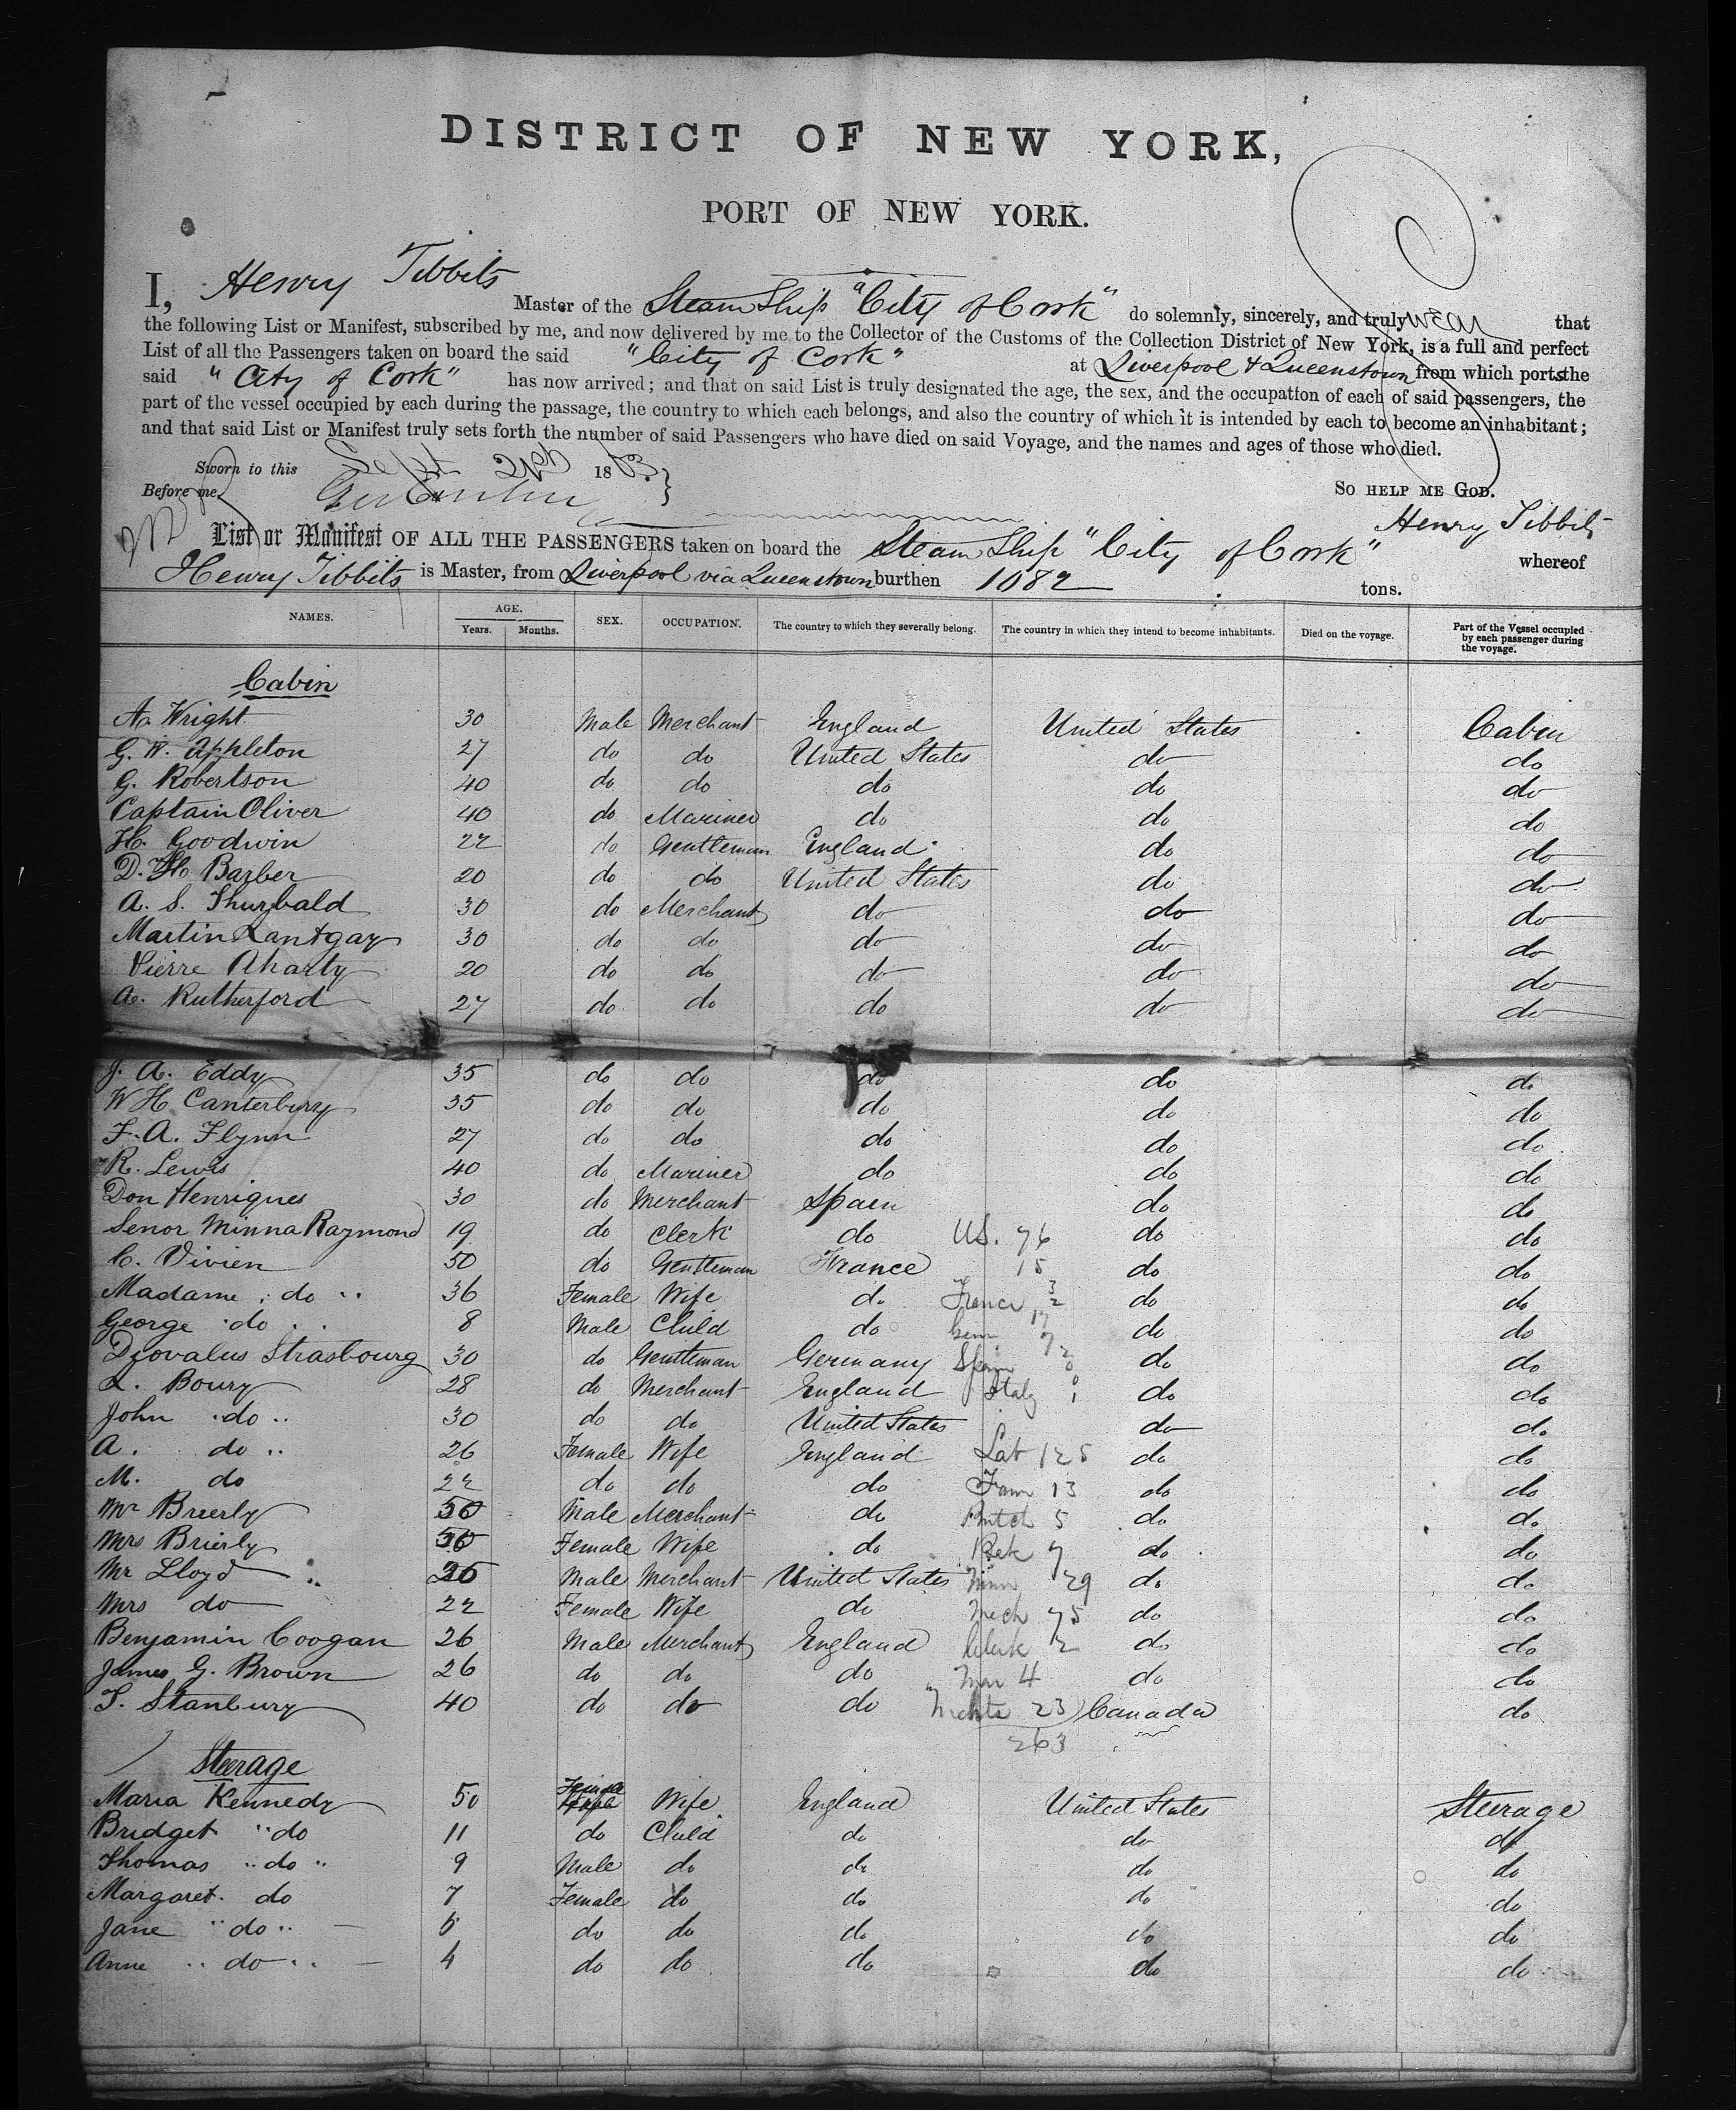 DISTRICT OF NEW YORK,
PORT OF NEW YORK.
I, Henry Tibbits Master of the Steam Ship "City of Cork" do solemnly, sincerely, and truly swear that
the following List or Manifest, subscribed by me, and now delivered by me to the Collector of the Customs of the Collection District of New York, is a full and perfect
List of all the Passengers taken on board the said "City of Cork" at Liverpool & Queenstown from which ports the
said "City of Cork" has now arrived; and that on said List is truly designated the age, the sex, and the occupation of each of said passengers, the
part of the vessel occupied by each during the passage, the country to which each belongs, and also the country of which it is intended by each to become an inhabitant;
and that said List or Manifest truly sets forth the number of said Passengers who have died on said Voyage, and the names and ages of those who died.
Sworn to this Sept 1863
Before me,
SO HELP ME GOD.
Henry Tibbits
List or Manifest OF ALL THE PASSENGERS taken on board the Steam Ship "City of Cork" whereof
Henry Tibbits is Master, from Liverpool via Queenstown burthen 1082 tons.
NAMES. AGE. Years. Months. SEX. OCCUPATION. The country to which they severally belong. The country in which they intend to become inhabitants. Died on the voyage. Part of the Vessel occupied by each passenger during the voyage.
Cabin
A. Wright 30 Male Merchant England United States Cabin
G. W. Appleton 27 do do United States do do
G. Robertson 40 do do do do do
Captain Oliver 40 do Mariner do do do
H. Goodwin 22 do Gentleman England do do
D. H. Barber 20 do do United States do do
A. S. Thurybald 30 do Merchant do do do
Martin Lantgay 30 do do do do do
Pierre Aharty 20 do do do do do
A. Rutherford 27 do do do do do
J. A. Eddy 35 do do do do do
W H Canterbury 35 do do do do do
F. A. Flynn 27 do do do do do
R. Lewis 40 do Mariner do do do
Don Henriques 30 do Merchant Spain do do
Senor Minna Raymond 19 do Clerk do US. 76 do do
C. Vivien 50 do Gentleman France 15 do do
Madame do 36 Female Wife do France do do
George do 8 Male Child do do do
Djovalus Strasbourg 30 do Gentleman Germany Spain do do
L. Boury 28 do Merchant England Italy 1 do do
John do 30 do do United States do do
A. do 26 Female Wife England Lab 125 do do
M. do 22 do do do Farm 13 do do
Mr Brierly 50 Male Merchant do 5 do do
Mrs Brierly 50 Female Wife do 7 do do
Mr Lloyd Male Merchant United States 29 do do
Mrs do 22 Female Wife do Mech 75 do do
Benjamin Coogan 26 Male Merchant England Clerk 2 do do
James G. Brown 26 do do do Mar 4 do do
T. Stanbury 40 do do do 23 Canada do
263
Steerage
Maria Kennedy 50 Female Wife England United States Steerage
Bridget do 11 do Child do do do
Thomas do 9 Male do do do do
Margaret do 7 Female do do do do
Jane do 5 do do do do do
Anne do 4 do do do do do